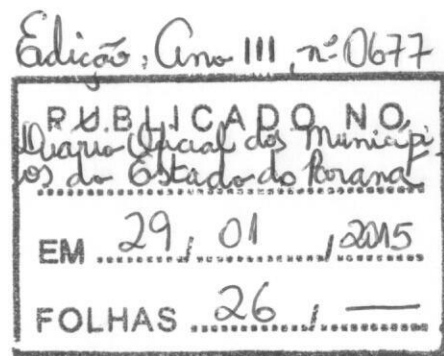 Edição: Ano III, nº 0677
PUBLICADO NO
Diario Oficial dos Municipi
os do Estado do Paraná
EM 29 / 01 / 2015
FOLHAS 26 / —